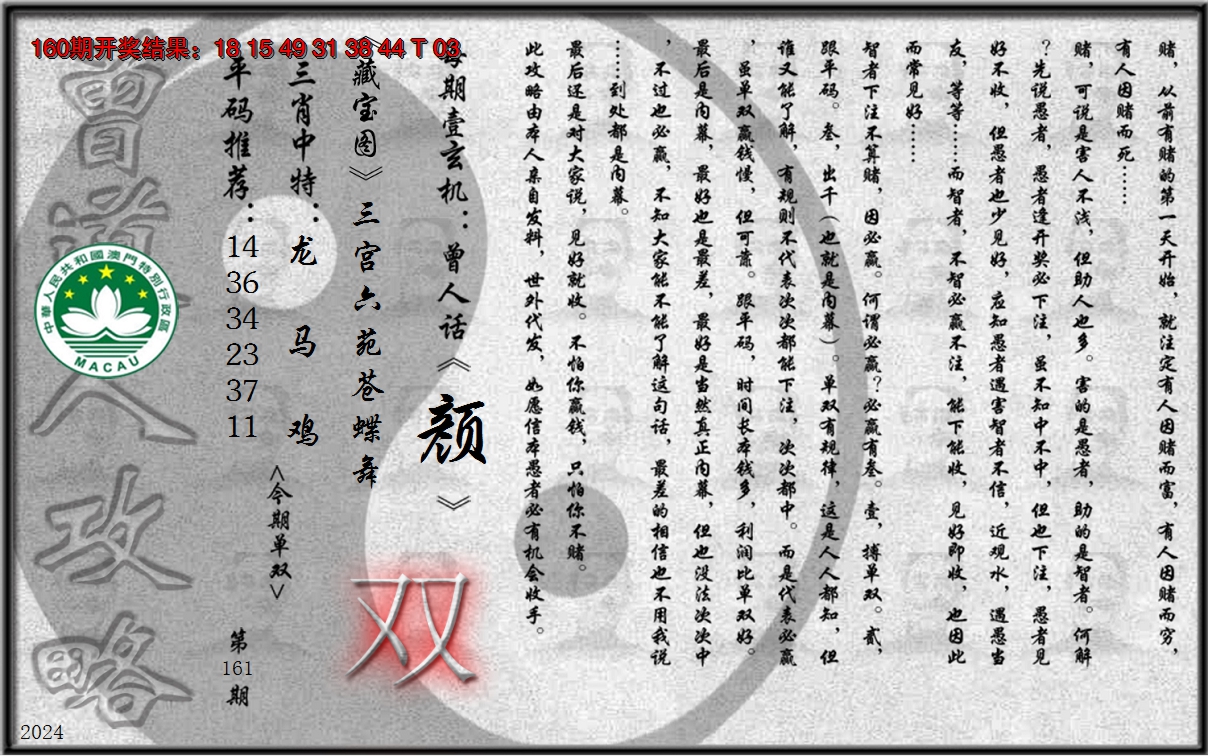 160期开奖结果：18 15 49 31 38 44 T 03
赌，从前有赌的第一天开始，就注定有人因赌而富，有人因赌而穷，
有人因赌而死……
赌，可说是害人不浅，但助人也多。害的是愚者，助的是智者。何解
？先说愚者，愚者逢开奖必下注，虽不知中不中，但也下注，愚者见
好不收，但愚者也少见好，应知愚者遇害智者不信，近观水，遇愚当
友，等等……而智者，不智必赢不注，能下能收，见好即收，也因此
而常见好……
智者下注不算赌，因必赢。何谓必赢？必赢有叁。壹，搏单双。贰，
跟平码。叁，出千（也就是内幕）。单双有规律，这是人人都知，但
谁又能了解，有规则不代表次次都能下注，次次都中。而是代表必赢
，虽单双赢钱慢，但可靠。跟平码，时间长本钱多，利润比单双好。
最后是内幕，最好也是最差，最好是当然真正内幕，但也没法次次中
，不过也必赢，不知大家能不能了解这句话，最差的相信也不用我说
……到处都是内幕。
最后还是对大家说，见好就收。不怕你赢钱，只怕你不赌。
此攻略由本人亲自发料，世外代发，如愿信本愚者必有机会收手。
每期壹玄机：曾人话《颜》
《藏宝图》三宫六苑苍蝶舞
双
三肖中特：龙 马 鸡
<今期单双>
平码推荐：14 36 34 23 37 11
第161期
曾道人攻略
中華人民共和國澳門特別行政區
MACAU
2024